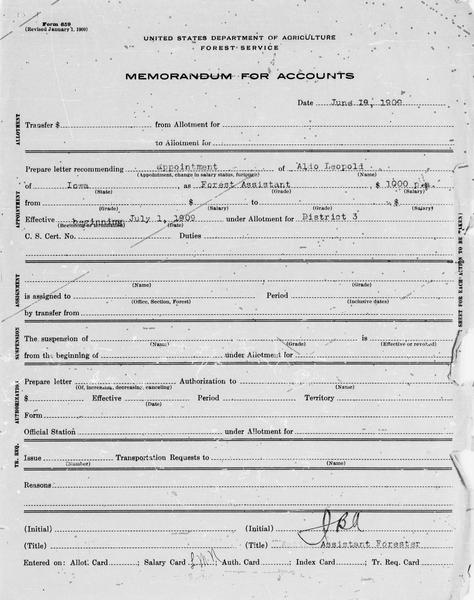 Form 659
(Revised January 1, 1909)
UNITED STATES DEPARTMENT OF AGRICULTURE
FOREST SERVICE
MEMORANDUM FOR ACCOUNTS
Date June 19, 1909
ALLOTMENT
Transfer $ from Allotment for
to Allotment for
APPOINTMENT
Prepare letter recommending appointment of Aldo Leopold
(Appointment, change in salary status, furlough) (Name)
of Iowa as Forest Assistant $ 1000 p.a.
(State) (Grade) (Salary)
from $ to $
(Grade) (Salary) (Grade) (Salary)
Effective beginning July 1, 1909 under Allotment for District 3
(Beginning or termination) (Date)
C. S. Cert. No. Duties
SHEET FOR EACH ACTION TO BE TAKEN)
ASSIGNMENT
(Name) (Grade)
is assigned to Period
(Office, Section, Forest) (Inclusive dates)
by transfer from
SUSPENSION
The suspension of is
(Name) (Grade) (Effective or revoked)
from the beginning of under Allotment for
AUTHORIZATION
Prepare letter Authorization to
(Of, increasing, decreasing, canceling) (Name)
$ Effective Period Territory
(Date)
Form
Official Station under Allotment for
TR. REQ.
Issue Transportation Requests to
(Number) (Name)
Reasons
(Initial) (Initial)
(Title) (Title) Assistant Forester
Entered on: Allot. Card Salary Card Auth. Card Index Card Tr. Req. Card